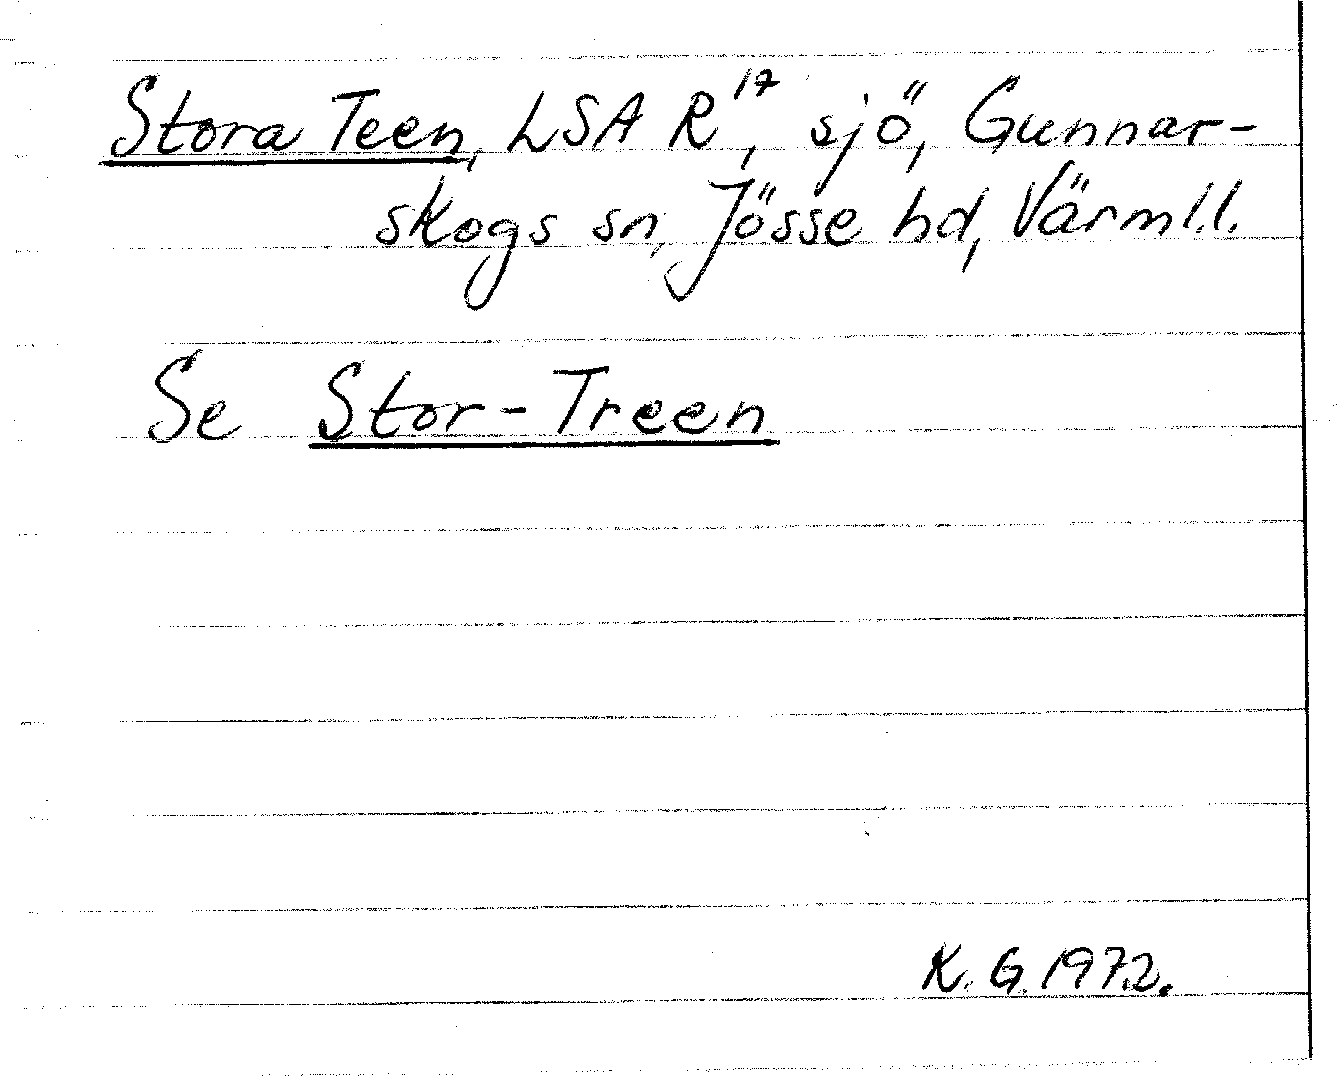 Stora Teen, LSA R¹⁷, sjö, Gunnar-
skogs sn, Jösse hd, Värml.l.
Se Stor-Treen
K. G. 1972.